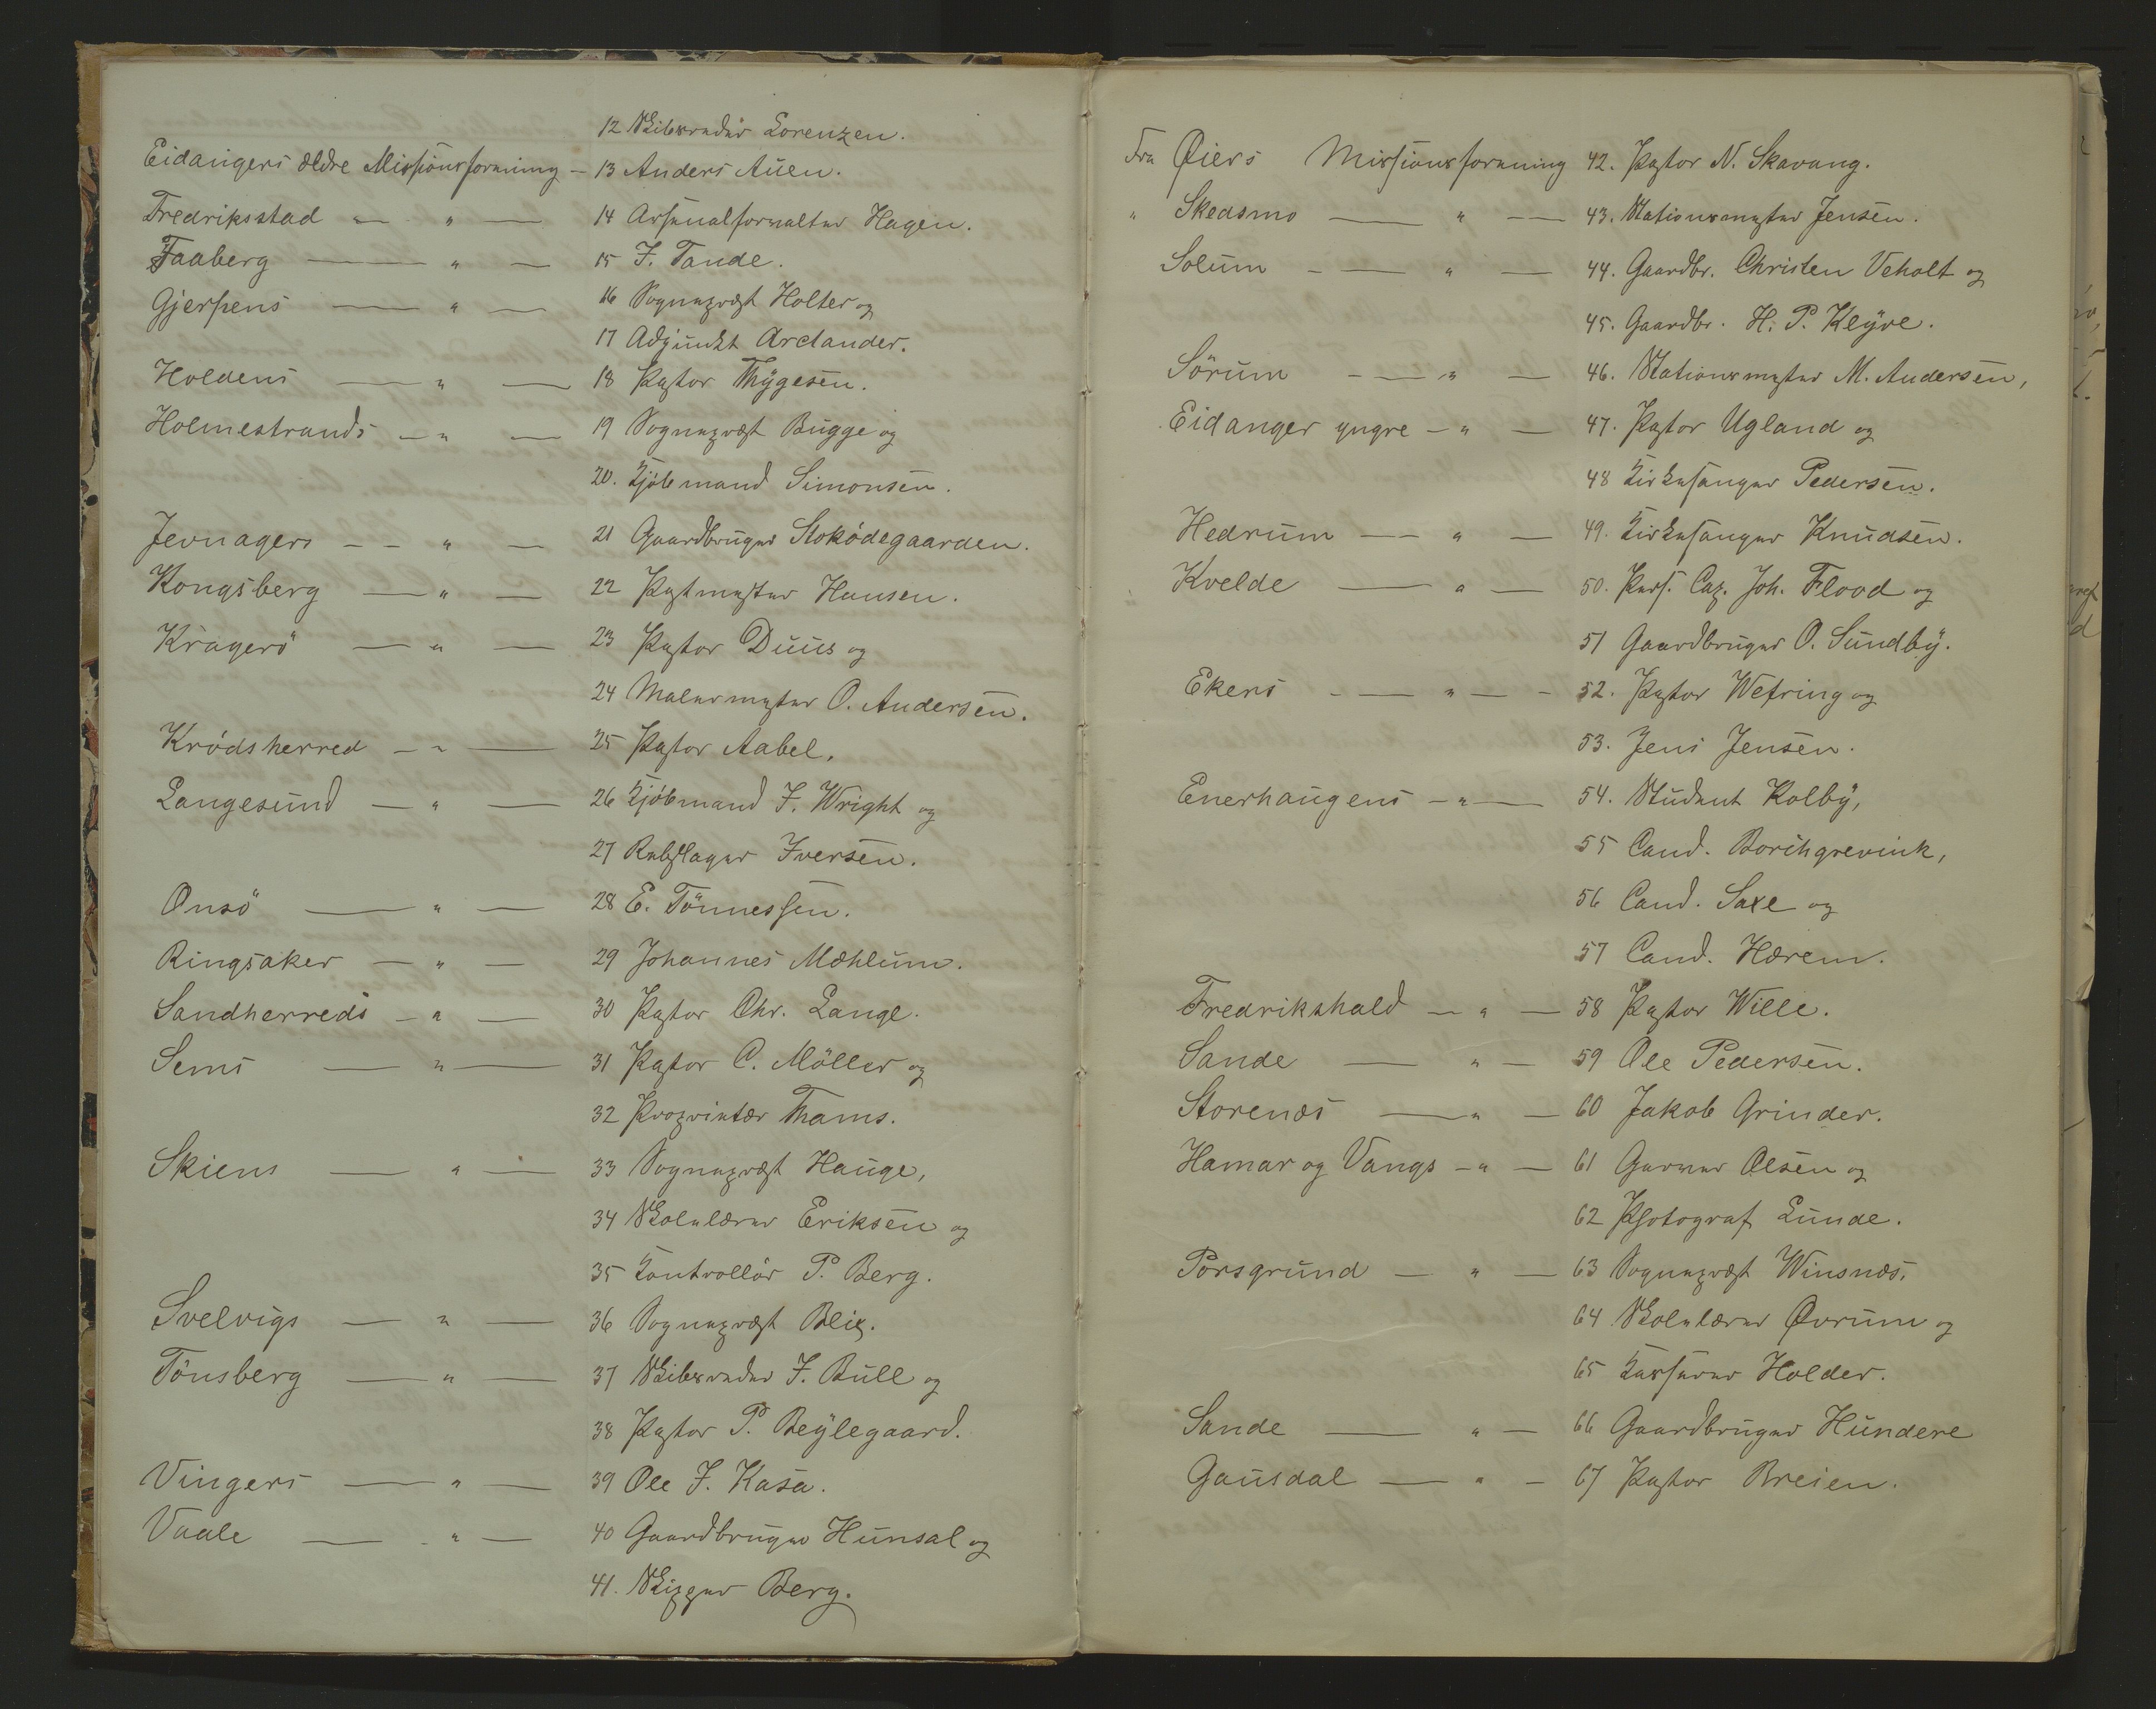 12 Skibsreder Lorenzen.
Eidangers ældre Missionsforening - 13 Anders Auen.
Fredriksstad — " — 14 Arsenalforvalter Hagen.
Faaberg — " — 15 J. Tande.
Gjerpens — " — 16 Sognepræst Holter og
17 Adjunkt Arctander.
Holdens — " — 18 Pastor Thygesen.
Holmestrands — " — 19 Sognepræst Bugge og
20. Kjøbmand Simonsen.
Jevnagers — " — 21 Gaardbruger Stokødegaarden.
Kongsberg — " — 22 Postmester Hansen.
Kragerö — " — 23 Pastor Duus og
24 Malermester O. Andersen.
Krødsherred — " — 25 Pastor Aabel.
Langesund — " — 26 Kjøbmand J. Wright og
27 Rebslager Iversen.
Onsö — " — 28 E. Tönnessen.
Ringsaker — " — 29 Johannes Mæhlum.
Sandherreds — " — 30 Pastor Chr. Lange.
Sems — " — 31 Pastor C. Möller og
32 Proprietær Thams.
Skiens — " — 33 Sognepræst Hauge,
34 Skolelærer Eriksen og
35 Kontrollör P. Berg.
Svelvigs — " — 36 Sognepræst Blix.
Tönsberg — " — 37 Skibsreder J. Bull og
38 Pastor P. Beylegaard.
Vingers — " — 39 Ole J. Kasa.
Vaale — " — 40 Gaardbruger Hunsal og
41. Skipper Berg.
Fra Øiers Missionsforening 42. Pastor N. Skavang.
" Skedsmo — " — 43. Stationsmester Jensen.
Solum — " — 44. Gaardbr. Christen Veholt og
45. Gaardbr. H. P. Kleyve.
Sörum — " — 46. Stationsmester M. Andersen,
Eidanger yngre — " — 47. Pastor Ugland og
48 Kirkesanger Pedersen.
Hedrum — " — 49. Kirkesanger Knudsen.
Kvelde — " — 50. Pers. Cap. Joh. Flood og
51 Gaardbruger O. Sundby.
Ekers — " — 52. Pastor Wefring og
53. Jens Jensen.
Enerhaugens — " — 54. Student Kolby,
55 Cand. Borchgrevink,
56 Cand. Saxe og
57 Cand. Hærem.
Fredrikshald — " — 58 Pastor Wille.
Sande — " — 59 Ole Pedersen.
Storenæs — " — 60 Jakob Grinder.
Hamar og Vangs — " — 61 Garver Olsen og
62 Photograf Lunde.
Porsgrund — " — 63 Sognepræst Winsnæs.
64 Skolelærer Øvrum og
65 Kasserer Holder.
Sande — " — 66 Gaardbruger Hundere
Gausdal — " — 67 Pastor Breien.